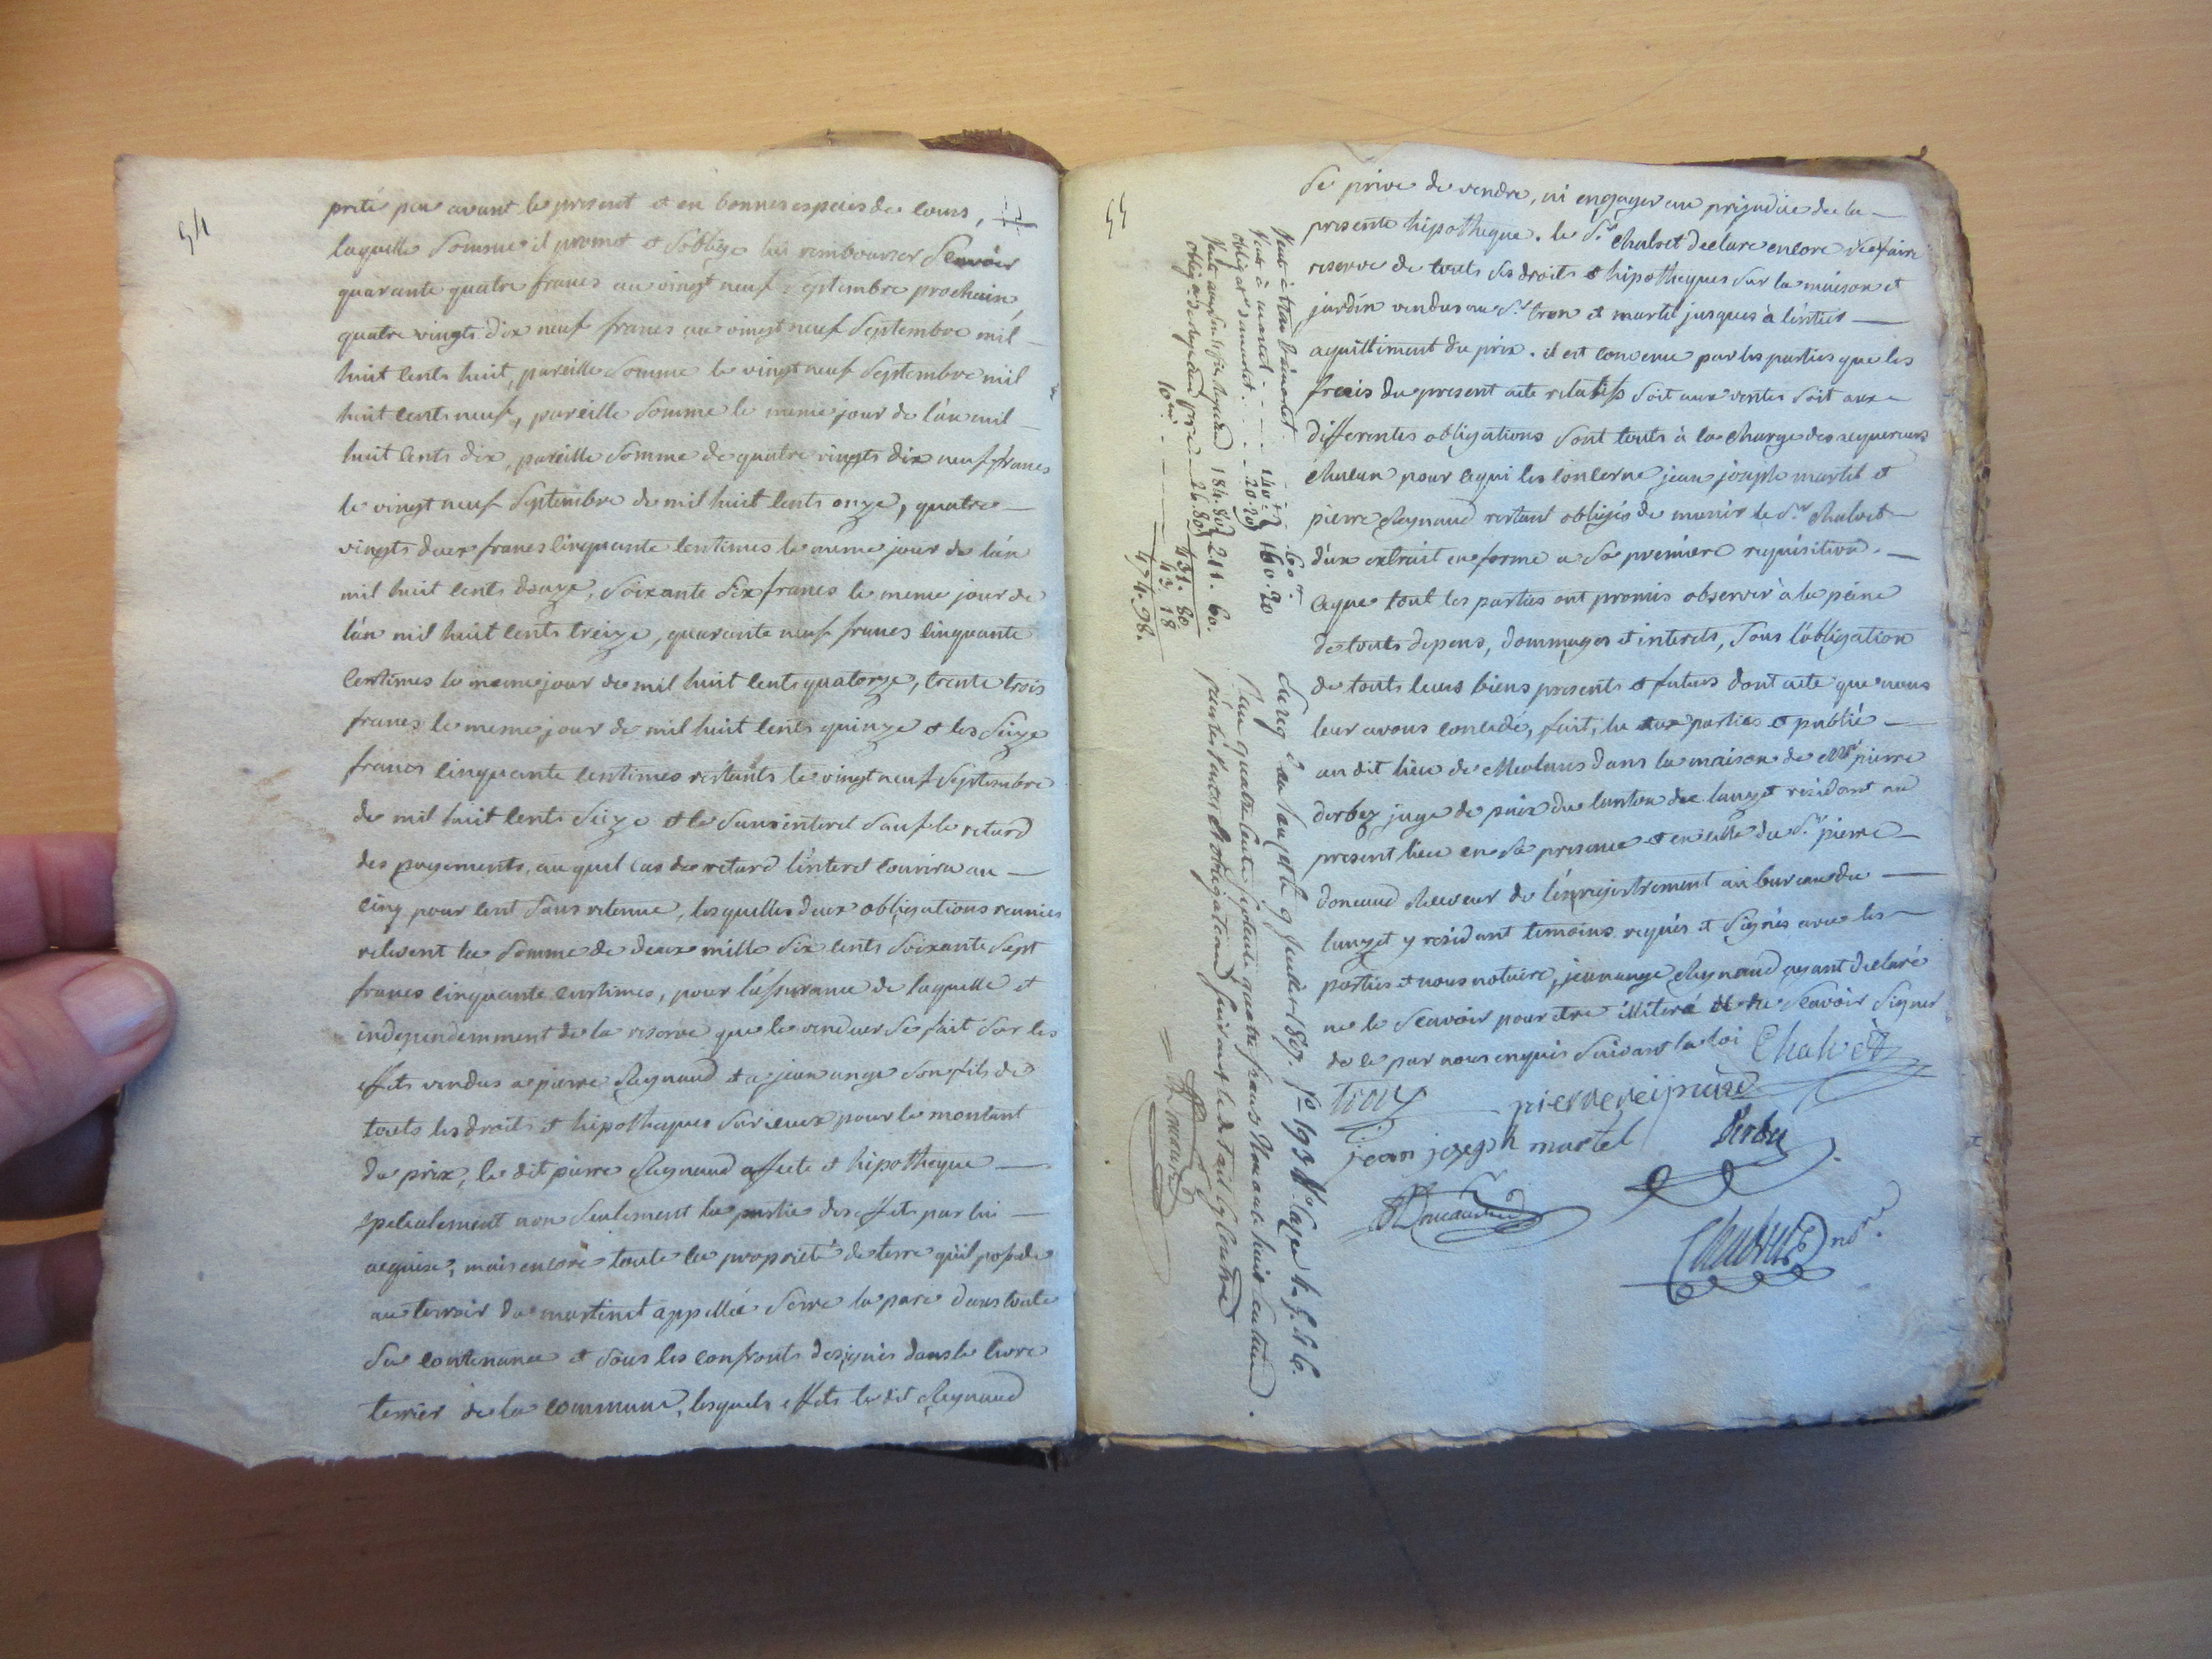 54
preté peu avant le present et en bonnes especes de cours,
laquelle somme il promet et s'oblige lui rembourser scavoir
quarante quatre francs au vingt neuf septembre prochain,
quatre vingts dix neuf francs au vingt neuf septembre mil
huit cents huit, pareille somme le vingt neuf septembre mil
huit cents neuf, pareille somme le meme jour de l'an mil
huit cents dix, pareille somme de quatre vingts dix neuf francs
le vingt neuf septembre de mil huit cents onze, quatre
vingts deux francs cinquante centimes le meme jour de l'an
mil huit cents douze, soixante six francs le meme jour de
l'an mil huit cents treize, quarante neuf francs cinquante
centimes le meme jour de mil huit cents quatorze, trente trois
francs le meme jour de mil huit cents quinze et les seize
francs cinquante centimes restants le vingt neuf septembre
de mil huit cents seize et le sans interet sauf le retard
des payements, au quel cas de retard l'interet courrira au
cinq pour cent sans retenue, lesquelles deux obligations reunies
relevent la somme de deux mille six cents soixante sept
francs cinquante centimes, pour l'assurance de laquelle et
independemment de la reserve que le vendeur se fait sur les
effets vendus a pierre Reynaud et a jean ange son fils de
touts les droits et hipotheques sur iceux pour le montant
du prix, le dit pierre Reynaud affecte et hipotheque
specialement non seulement la partie des effets par lui
acquise, mais encore toute la proprieté de terre qu'il possede
au terroir du martinet appellée serre la pare dans toute
sa contenance et sous les confronts designés dans le livre
terrier de la commune, lesquels effets le dit Reynaud
55
se prive de vendre, ni engager au prejudice de la
presente hipotheque. le Sr. Chalvet declare encore se faire
reserve de touts ses droits et hipotheques sur la maison et
jardin vendus au Sr. tron et martel jusques à l'entier
aquittiment du prix. il est convenu par les parties que les
frais du present acte relatifs soit aux ventes soit aux
differentes obligations sont touts à la charge des aquereurs
chacun pour ce qui les concerne, jean joseph martel et
pierre Reynaud restant obligés de munir le Sr. Chalvet
d'un extrait en forme a sa premiere requisition.
ce que tout les parties ont promis observer à la peine
de touts depens, dommages et interets, sous l'obligation
de touts leurs biens presents et futurs dont acte que nous
leur avons concedé, fait, lu aux parties et publié
au dit lieu de Meolans dans la maison de Mr. pierre
derbez juge de paix du canton du lauzet residant au
present lieu en sa presence et en celle du Sr. pierre
doneaud Receveur de l'enregistrement au bureau du
lauzet y residant temoins requis et signés avec les
parties et nous notaire, jean ange Reynaud ayant declaré
ne le scavoir pour etre illiteré de scavoir signer
de ce par nous enquis suivant la loi Chalvet
tron pierre reinaud
jean joseph martel Derbez
Doneaud
nore.
60.
Vente à martel 140.
20.20 160.20
184.80
26.80 211.60.
431.80
10me. 43.18
474.98.
Enreg. au Lauzet le 9 juillet 1807. fo 193 Vo.
Reçu quatre cents soixante quatre francs nonante huit centimes.
Doneaud